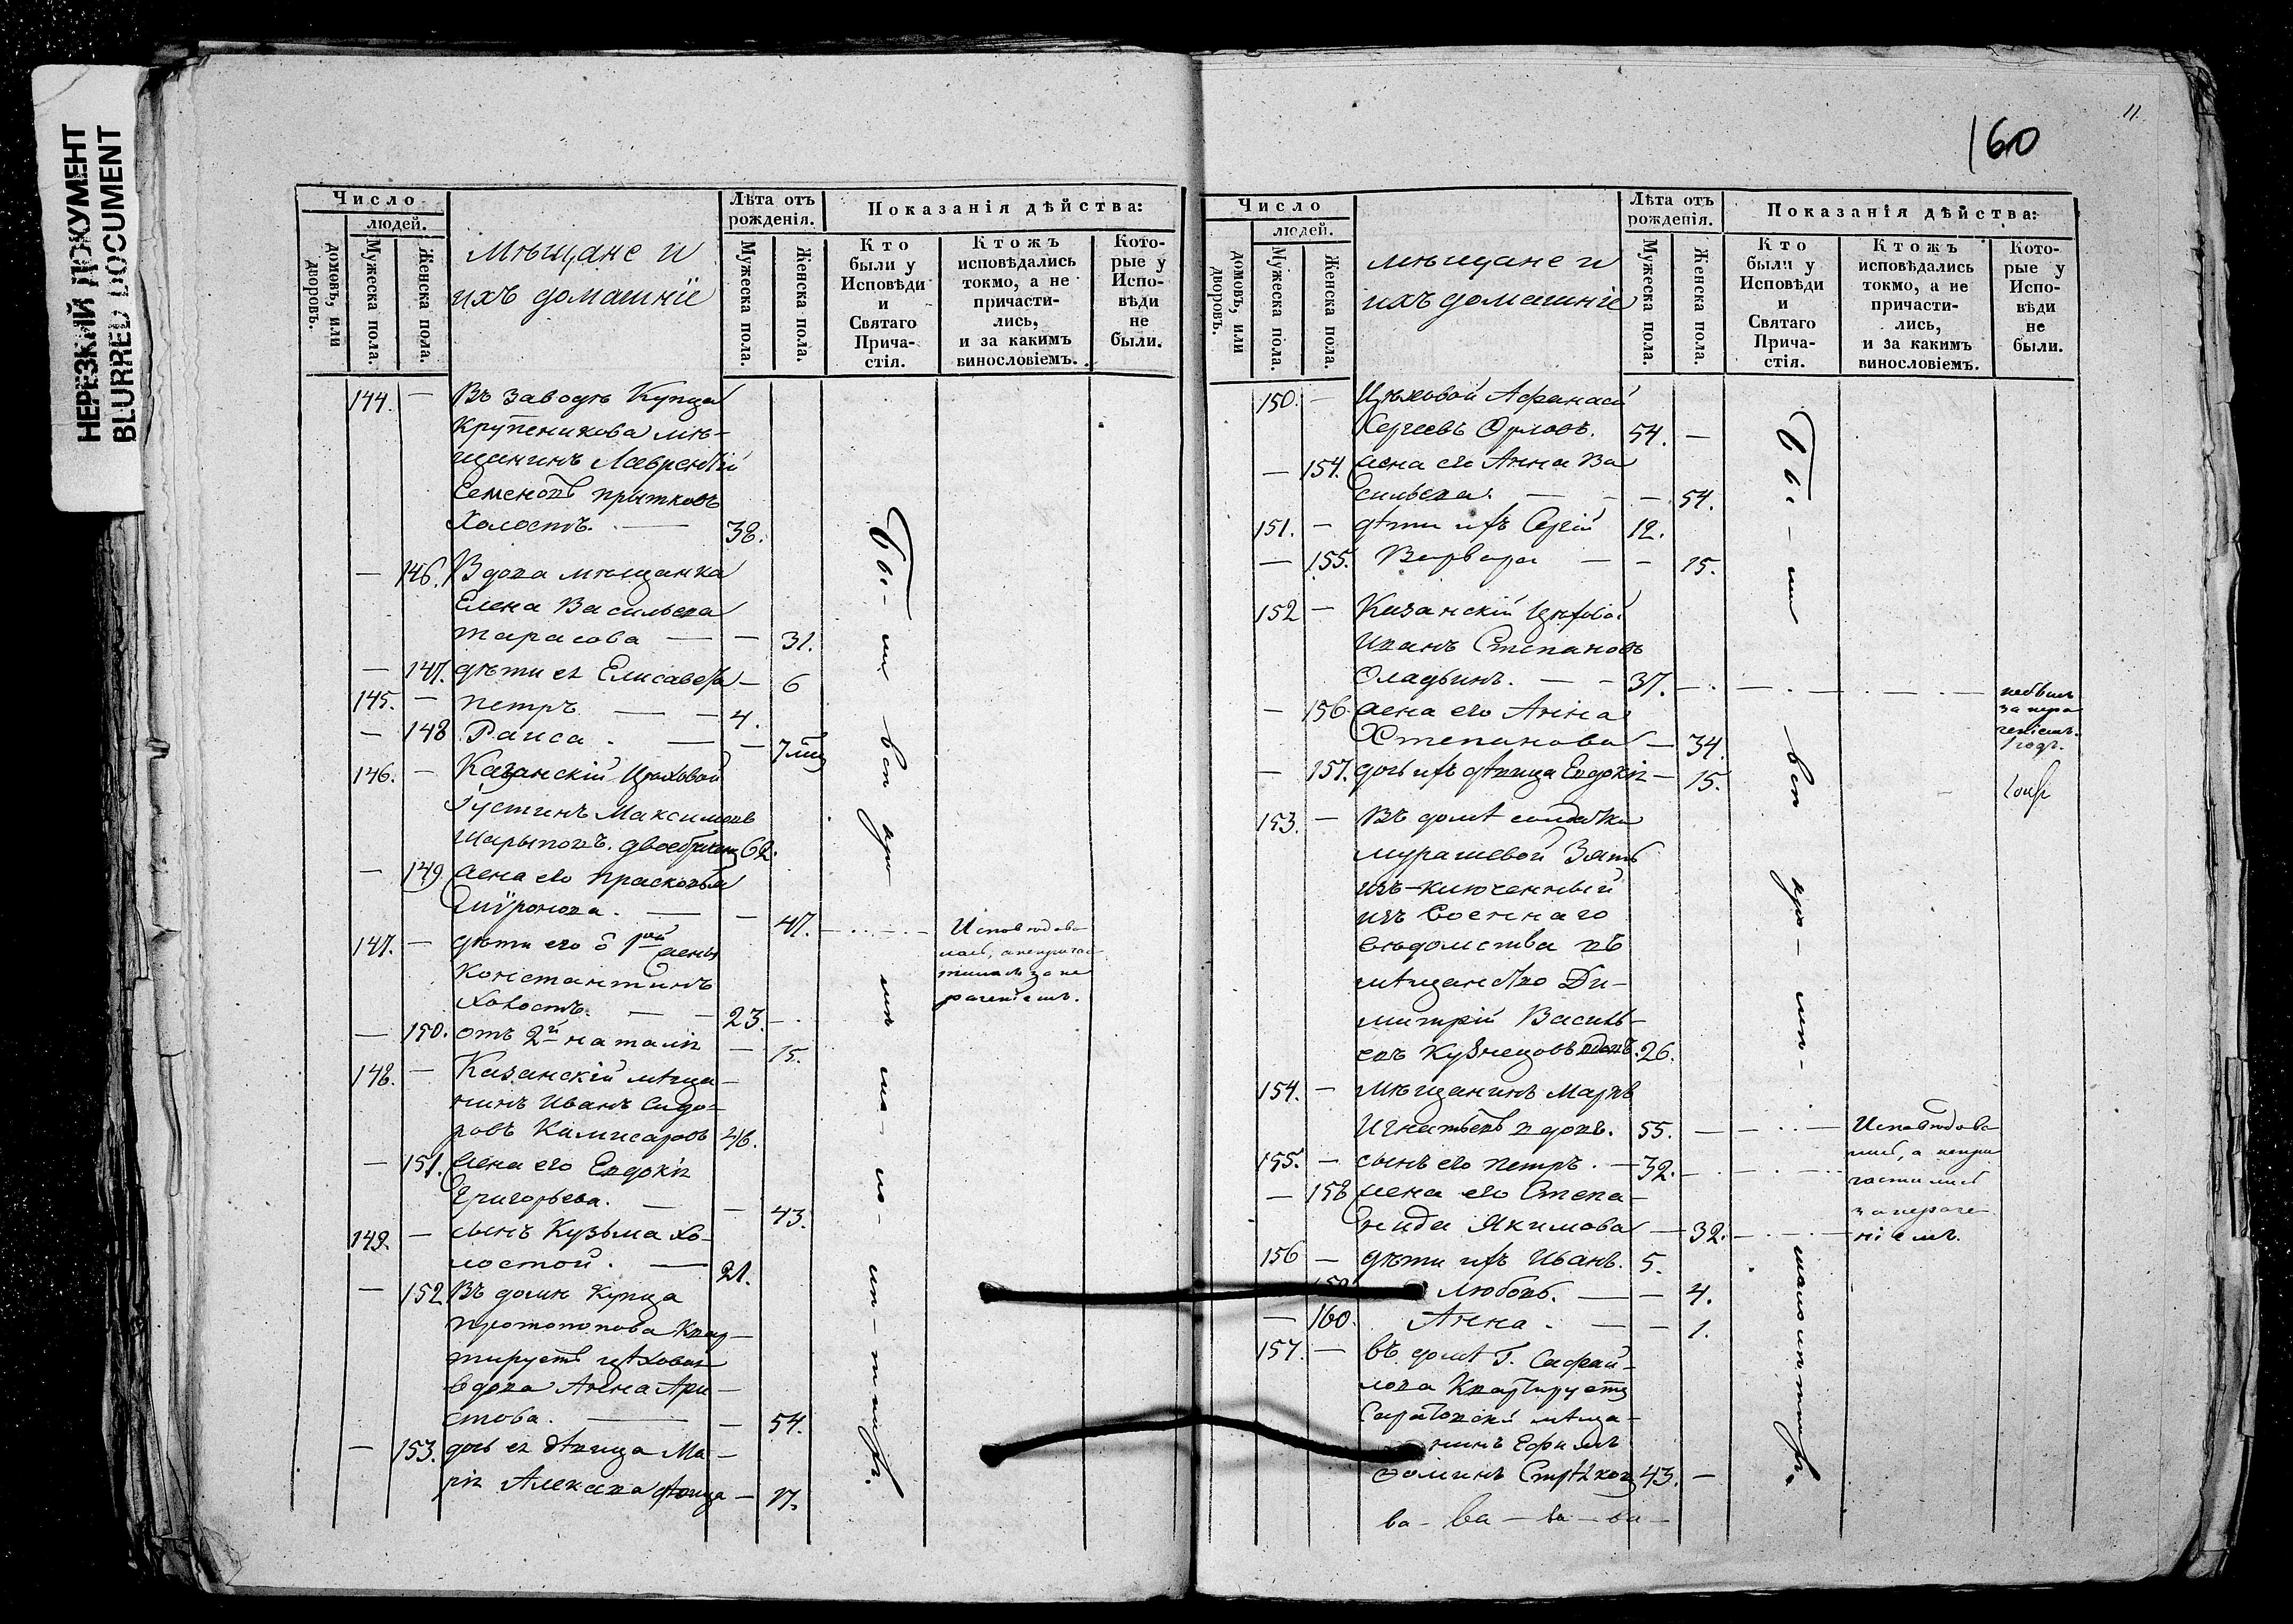 НЕРЕЗКИЙ ДОКУМЕНТ
BLURRED DOCUMENT
Число
людей.
домовъ, или дворовъ.
Мужеска пола.
Женска пола.
Мѣщане и
ихъ домашніе
Лѣта отъ рожденія.
Мужеска пола.
Женска пола.
Показанія дѣйства:
Кто были у Исповѣди и Святаго Прича-стія.
Ктожъ исповѣдались токмо, а не причасти-лись, и за какимъ винословіемъ.
Кото-рые у Испо-вѣди не были.
144. — Въ заводѣ Купца
Крупеникова мѣ-
щанинъ Лаврентій
Семеновъ Прытковъ
Холостъ. — 38.
— 146. Вдова мѣщанка
Елена Васильева
Тарасова — — 31.
— 147. дѣти ея Елисавета — 6
145. — Петръ — — 4.
— 148 Раиса. — — 7 мѣц
146. — Казанскій Цѣховой
Густинъ Максимовъ
Шарыповъ. двоебрачен 62.
— 149 жена его Прасковья
Миронова. — — 47.
Исповѣдова-
лась, а непричас-
тилась за не
раченіемъ.
147. — дѣти его ѿ 1вой жены
Константинъ
Холостъ. — — 23.
— 150. отъ 2й Наталія — 15.
148. — Казанскій мѣща-
нинъ Иванъ Сидо-
ровъ Камисаровъ 46.
— 151. Жена его Евдокія
Григорьева. — — 43.
149. — сынъ Кузьма хо-
лостой. — 21.
— 152 Въ домѣ Купца
Протопопова Квар-
тируетъ цѣховая
вдова Анна Ари-
стова. — — 54.
— 153. дочь ея дѣвица Ма-
рія Алексѣева дѣвица — 17.
Бы-ли
160
11.
Число
людей.
домовъ, или дворовъ.
Мужеска пола.
Женска пола.
Мѣщане и
ихъ домашніе
Лѣта отъ рожденія.
Мужеска пола.
Женска пола.
Показанія дѣйства:
Кто были у Исповѣди и Святаго Прича-стія.
Ктожъ исповѣдались токмо, а не причасти-лись, и за какимъ винословіемъ.
Кото-рые у Испо-вѣди не были.
150. — Цѣховой Афанасій
Сергеевъ Орловъ. 54. —
— 154. жена его Анна Ва
сильева. — — — 54.
151. — дѣти ихъ Сергій 12.
— 155. Варвара — — 15.
152 — Казанскій Цѣховой
Иванъ Степановъ
Оладьинъ. — — 37. —
небылъ
за нера
ченіемъ.
1 годъ.
— 156. жена его Анна
Степанова — 34.
— 157. дочь ихъ дѣвица Евдокія — 15.
153. — Въ домѣ солдатки
Мурашевой Зять
изъ-ключенный
изъ Военнаго
вѣдомства въ
мѣщанство Ди-
митрій Василь-
евъ Кузнецовъ вдовъ. 26.
154. — Мѣщанинъ Маркъ
Игнатьевъ вдовъ. 55. —
Исповѣдова
лись, а непри
частились
за нераче
ніемъ.
155. — сынъ его Петръ. — 32. —
— 158 жена его Степа-
нида Якимова — 32. —
156 — дѣти ихъ Иванъ. 5.
159 Любовь. — — 4.
— 160. Анна. — — 1.
157. — въ домѣ Г.
Квартируетъ
Саратовскій мѣща-
нинъ Ефимъ
Фоминъ 43. —
ва- ва — ва — ва —
Бы-ли